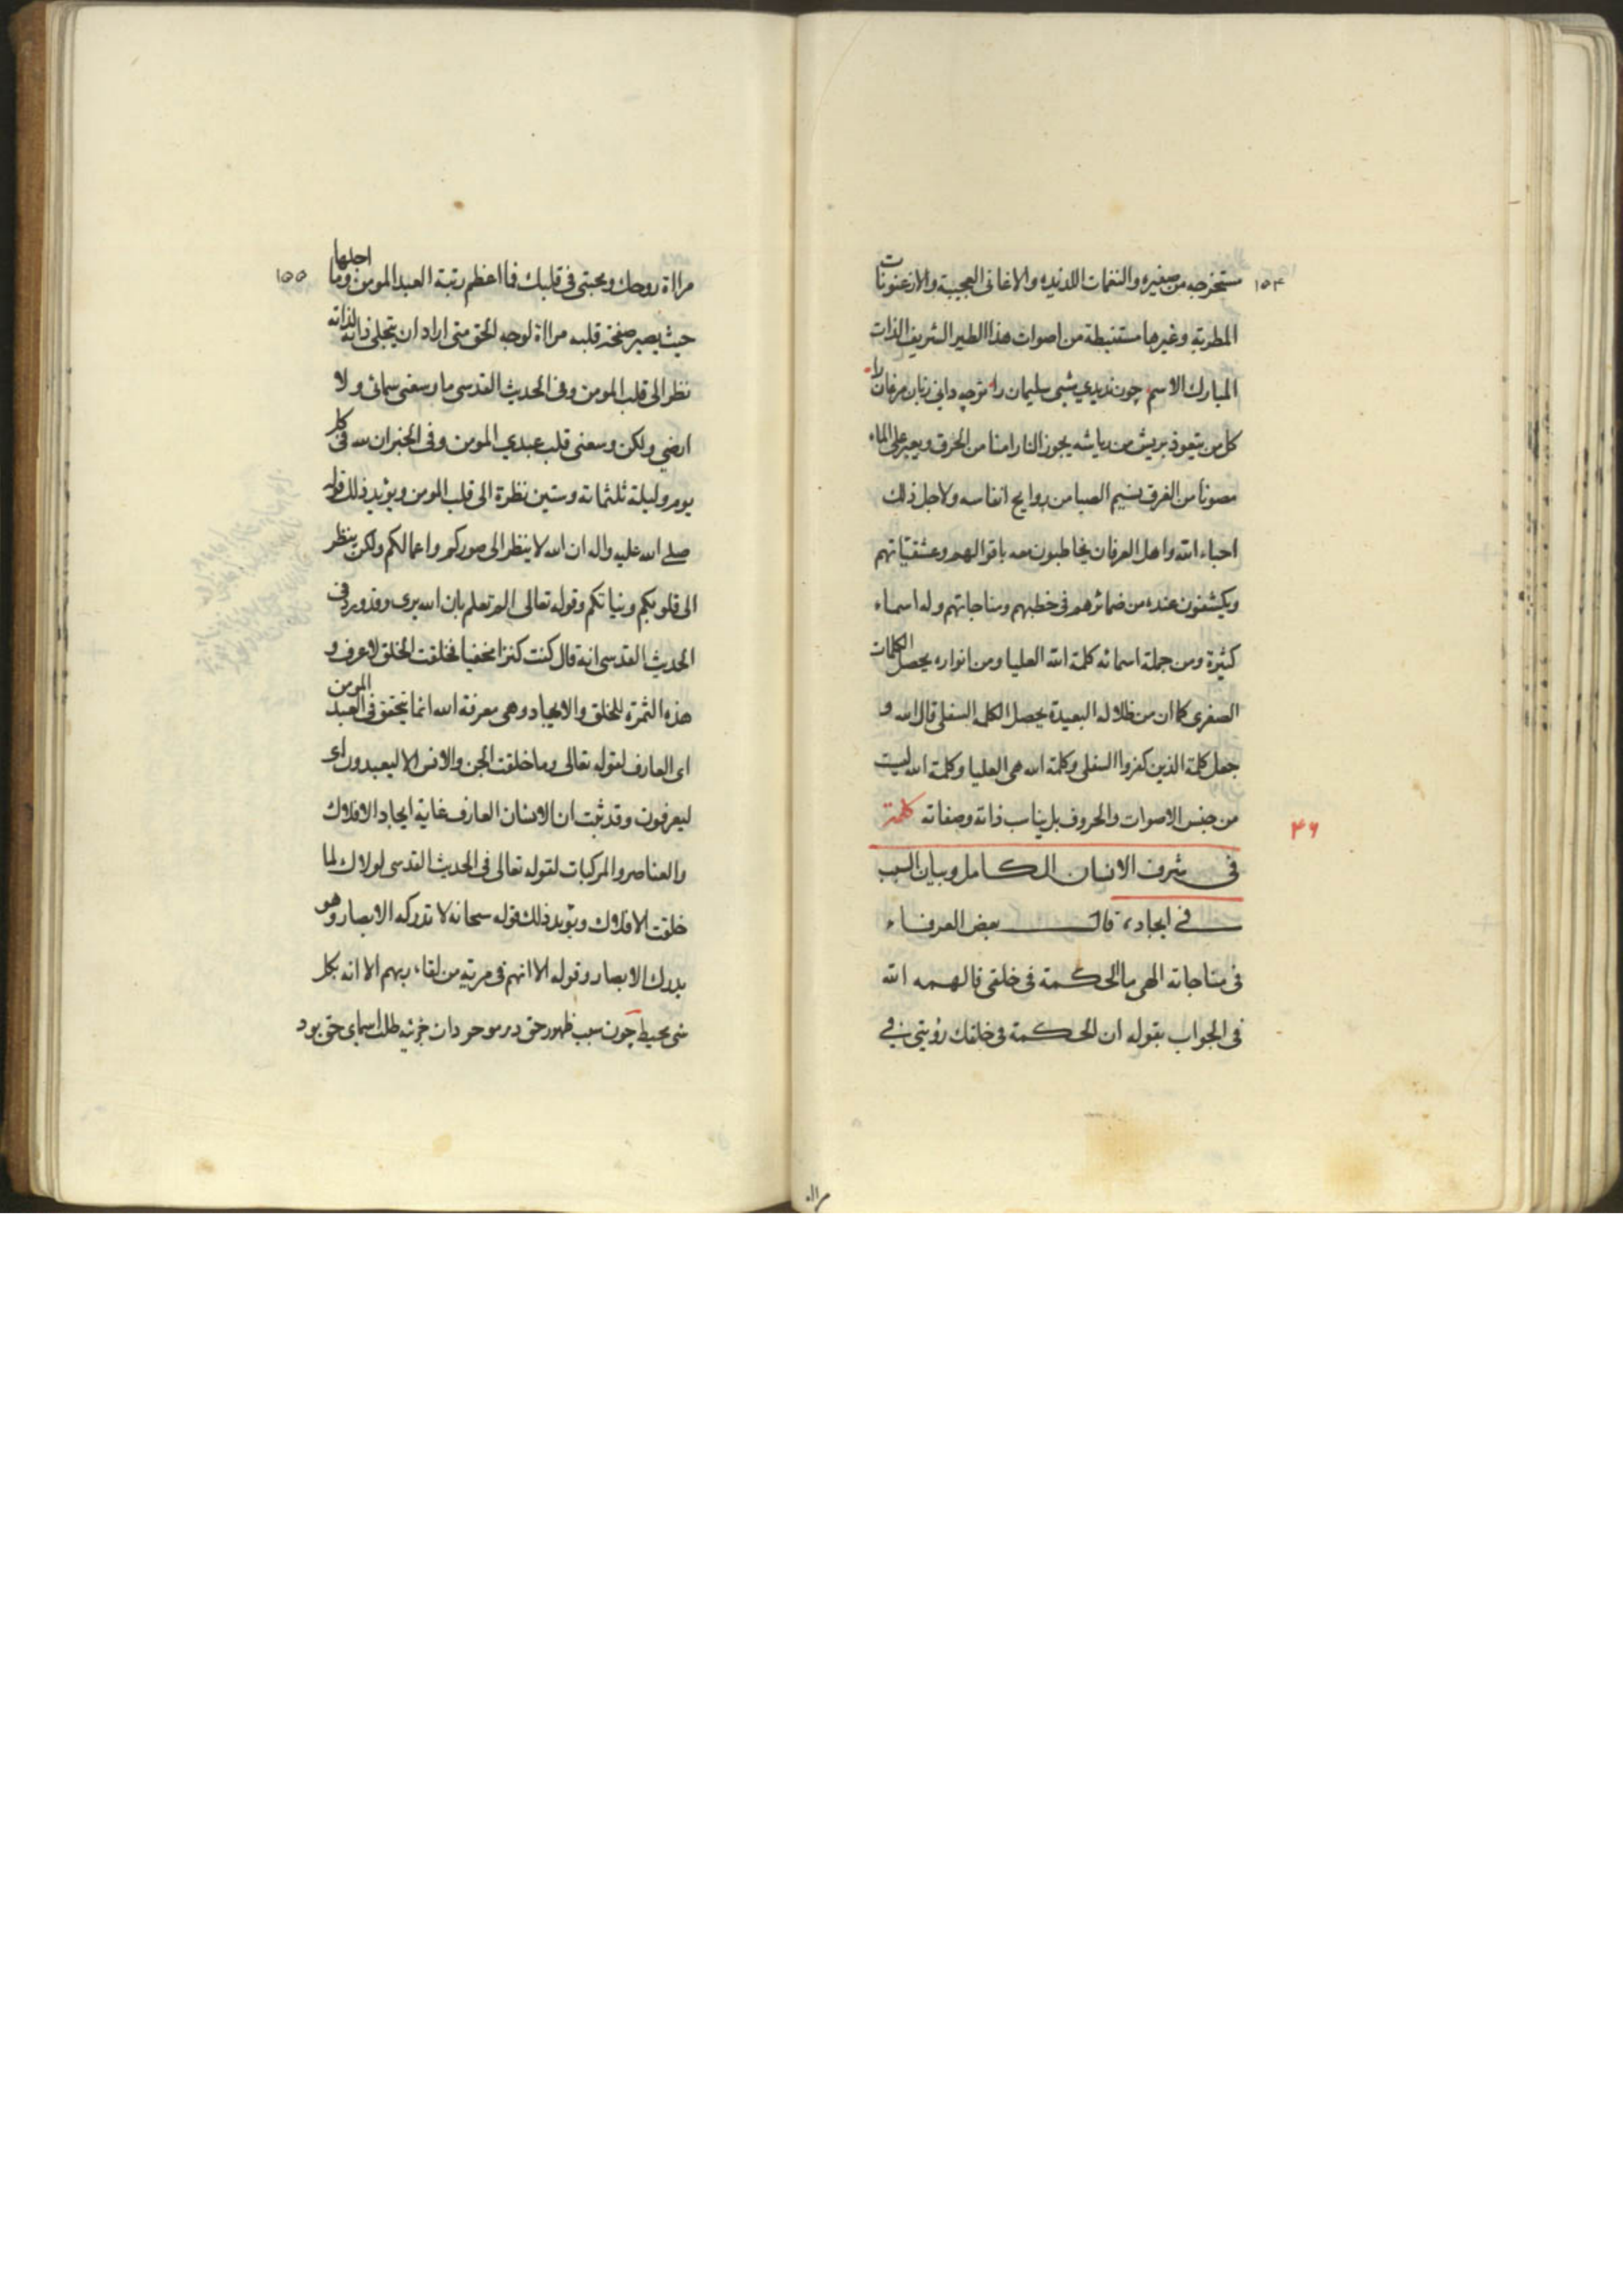 ۱۵۴
مستخرجه من صفیره والنغمات اللذیذه والاغانی العجیبة والارغنونات
المطربة وغیرها مستنبطة من اصوات هذا الطیر الشریف الذات
المبارک الاسم چون ندیدی شبی سلیمان را تو چه دانی زبان مرغان را
کل من یتعوذ بریش من ریاشه یجوز النار امنا من الحرق ویعبر علی الماء
مصونا من الغرق نسیم الصبا من روایح انفاسه ولاجل ذلک
احباء الله واهل العرفان یخاطبون معه باقوالهم وعشقیاتهم
ویکشفون عنده من ضمائرهم فی خطبهم ومناجاتهم وله اسماء
کثیرة ومن جملة اسمائه کلمة الله العلیا ومن انواره یحصل الکلمات
الصغری کما ان من ظلاله البعیدة یحصل الکلمة السفلی قال الله و
جعل کلمة الذین کفروا السفلی وکلمة الله هی العلیا وکلمة الله لیست
من جنس الاصوات والحروف بل یناسب ذاته وصفاته کلمة
۴۶
فی شرف الانسان الکامل وبیان السبب
فی ایجاده قال بعض العرفاء
فی مناجاته الهی ما الحکمة فی خلقی فالهمه الله
فی الجواب بقوله ان الحکمة فی خلقک رؤیتی فی
مراا
۱۵۵
مرااة روحک ومحبتی فی قلبک فما اعظم رتبة العبد المومن وما اجلها
حیث یصیر صفحة قلبه مرااة لوجه الحق متی اراد ان یتجلی ذاته لذاته
نظر الی قلب المومن وفی الحدیث القدسی ما وسعنی سمائی ولا
ارضی ولکن وسعنی قلب عبدی المومن وفی الخبر ان لله فی کل
یوم ولیلة ثلثمائة وستین نظرة الی قلب المومن ویؤید ذلک قوله
صلی الله علیه واله ان الله لا ینظر الی صورکم واعمالکم ولکن ینظر
الی قلوبکم ونیاتکم وقوله تعالی الم تعلم بان الله یری وقد ورد فی
الحدیث القدسی انه قال کنت کنزا مخفیا فخلقت الخلق لاعرف و
هذه الثمرة للخلق والایجاد وهی معرفة الله انما یتحقق فی العبد المومن
ای العارف لقوله تعالی وما خلقت الجن والانس الا لیعبدون ای
لیعرفون وقد ثبت ان الانسان العارف غایة ایجاد الافلاک
والعناصر والمرکبات لقوله تعالی فی الحدیث القدسی لولاک لما
خلقت الافلاک ویؤید ذلک قوله سبحانه لا تدرکه الابصار وهو
یدرک الابصار وقوله الا انهم فی مریة من لقاء ربهم الا انه بکل
شی محیط چون سبب ظهور حق در موجودات جزئیه طلب اسمای حق بود